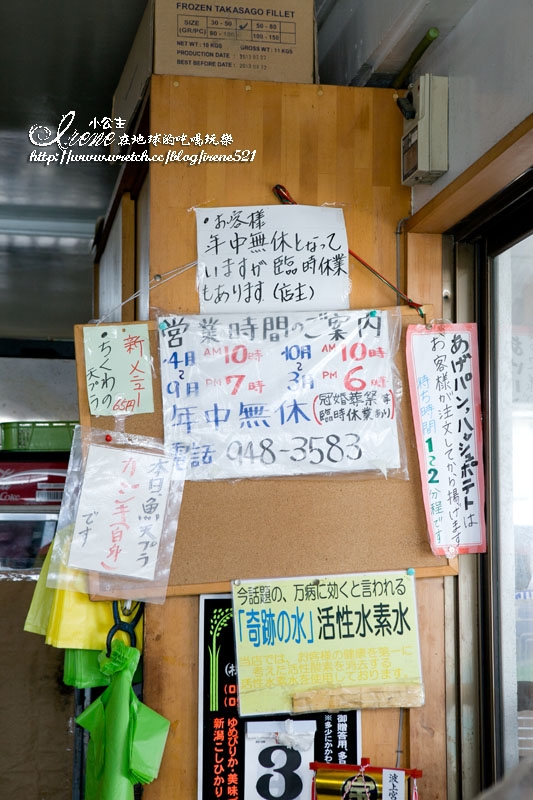 FROZEN TAKASAGO FILLET
SIZE (GR/PC) 30 - 50 50 - 80
80 - 100 100 - 150
NET WT : 10 KGS GROSS WT : 11 KGS
PRODUCTION DATE :
BEST BEFORE DATE :
小公主
Irene 在地球的吃喝玩樂
http://www.wretch.cc/blog/irene521
お客様
年中無休となって
いますが臨時休業
もあります(店主)
営業時間のご案内
4月〜9月 AM10時 PM7時
10月〜3月 AM10時 PM6時
年中無休(冠婚葬祭等臨時休業あり)
電話 948-3583
新メニュー
ちくわの天プラ
65円
本日魚天プラ
カジキ(白身)
です
あげパン、ハッシュポテトは
お客様が注文してから揚げます
待ち時間1〜2分程です
今話題の、万病に効くと言われる
「奇跡の水」活性水素水
当店では、お客様の健康を第一に
考えた活性酸素を消去する
活性水素水を使用しております。
ゆめぴりか・美味
新潟こしひかり
御贈答用、多
3
波上宮